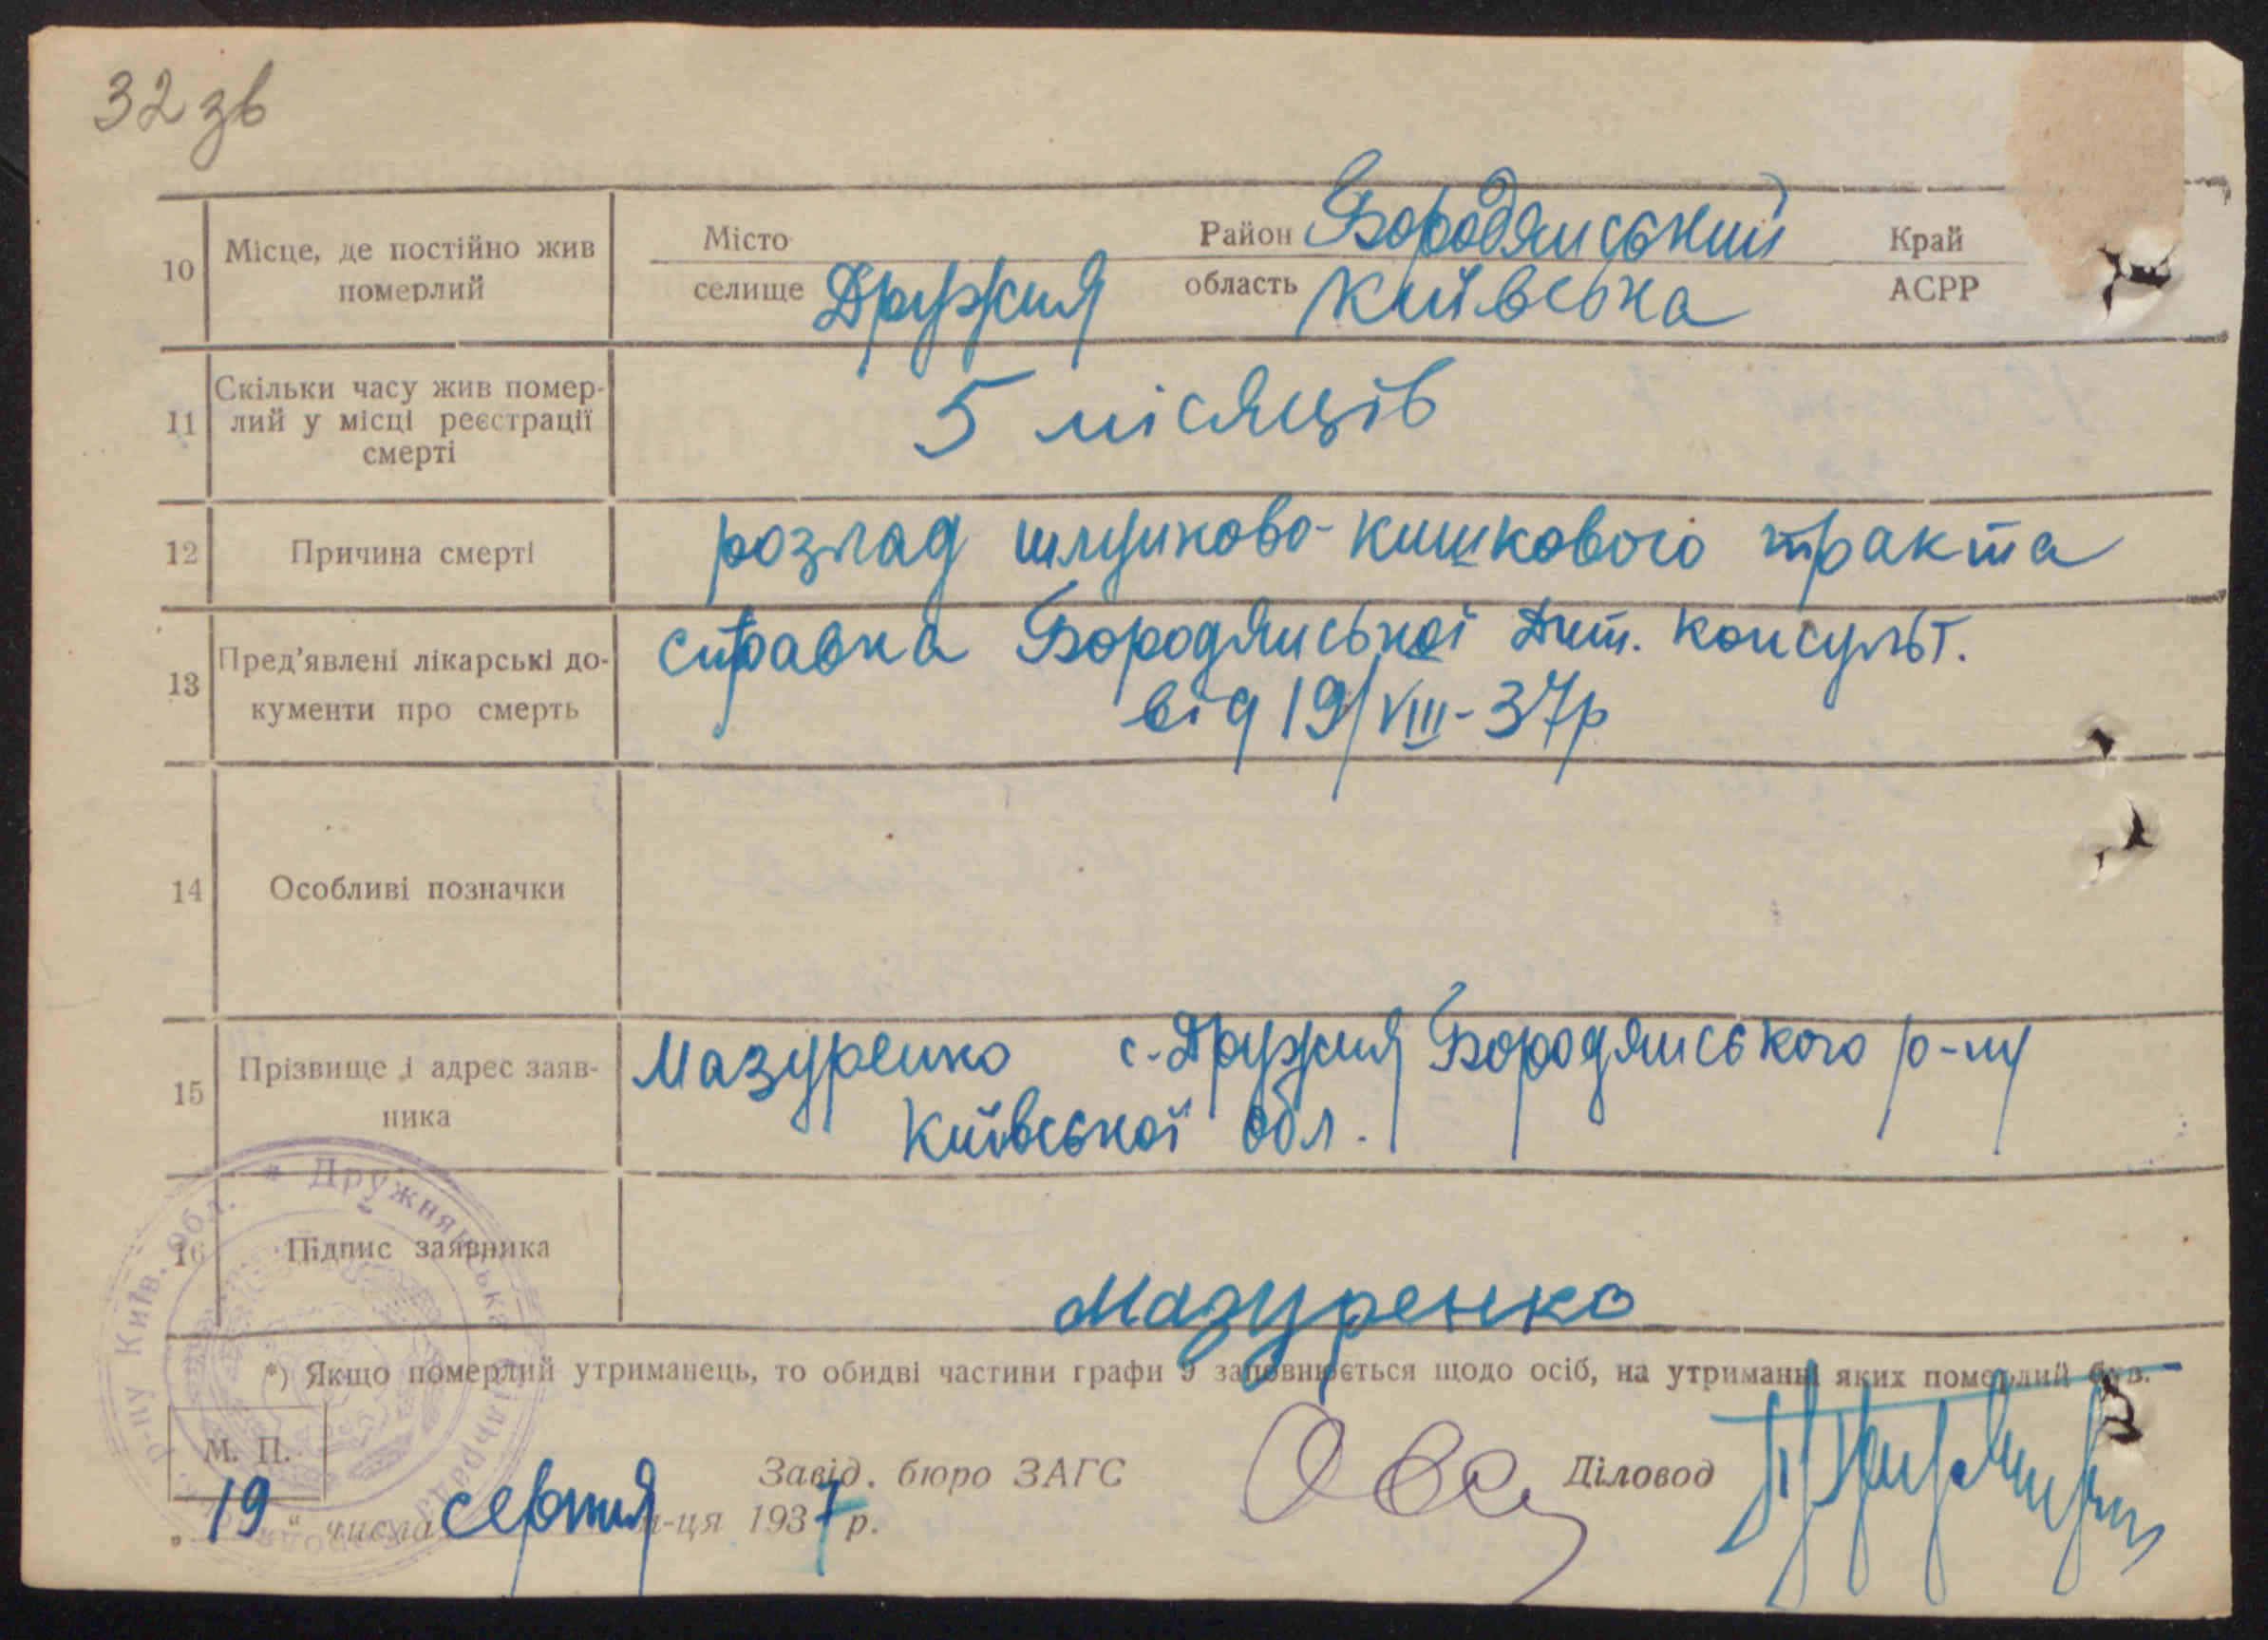 32 зв
10 Місце, де постійно жив померлий
Місто Район Бородянський Край
селище Дружня область Київська АСРР
11 Скільки часу жив помер-
лий у місці реєстрації
смерті
5 місяців
12 Причина смерті розлад шлунково-кишкового тракта
13 Пред'явлені лікарські до-
кументи про смерть
справка Бородянської Дит. консульт.
від 19/VIII-37р
14 Особливі позначки
15 Прізвище і адрес заяв-
ника
Мазуренко с. Дружня Бородянського р-ну
Київської обл.
16 Підпис заявника
Мазуренко
*) Якщо померлий утриманець, то обидві частини графи 9 заповнюється щодо осіб, на утриманні яких померлий був.
М. П.
Завід. бюро ЗАГС Діловод
„19“ числа серпня м-ця 1937 р.
* Дружнянська сільрада р-ну Київ. обл.